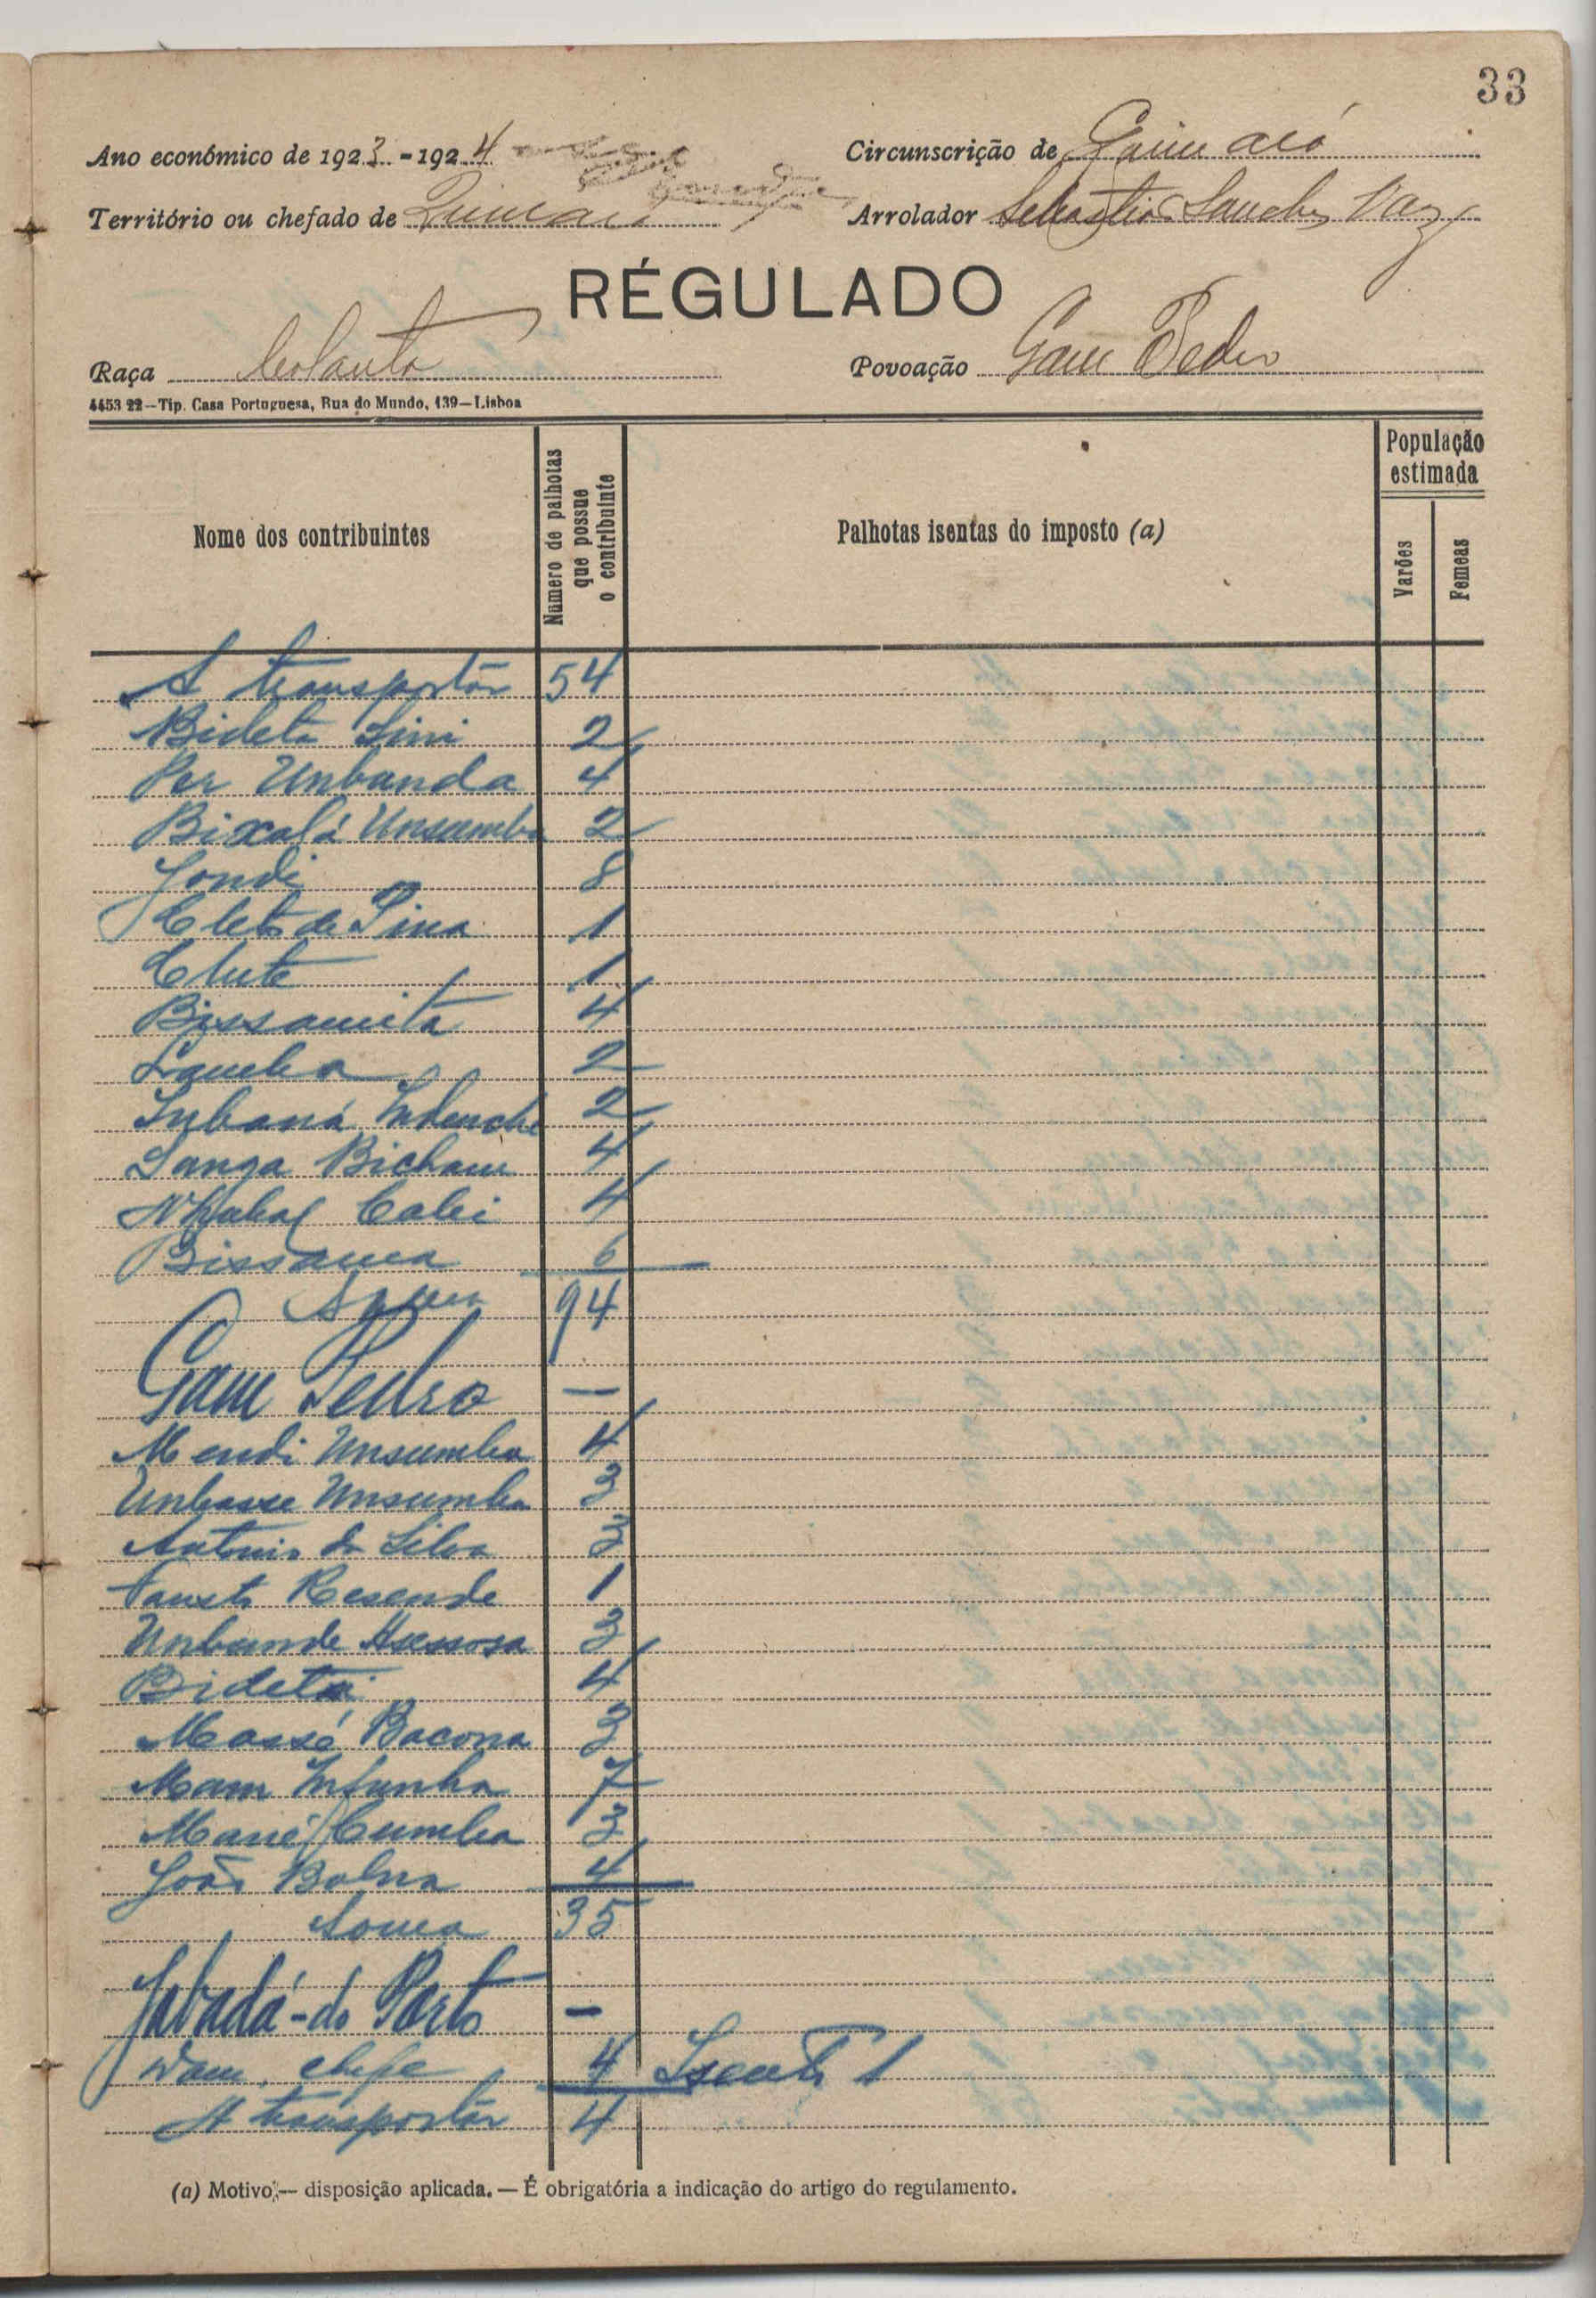 33
Ano económico de 1923-1924
Circunscrição de
Território ou chefado de
Arrolador Sebastião Sanches Vaz
RÉGULADO
Raça
Povoação Gam Pedro
4453 22—Tip. Casa Portuguesa, Rua do Mundo, 139—Lisboa
Nome dos contribuintes
Número de palhotas que possue o contribuinte
Palhotas isentas do imposto (a)
População estimada
Varões
Femeas
A transportar 54
Bideta Sini 2
Per Unbanda 4
Bixalá Unsumba 2
Jondi 8
Cleto de Pina 1
Clute 1
Bissamita 4
Lamba 2
Inbaná 2
Sanga 4
Cabi 4
Bissama 6
Soma 94
Gam Pedro —
Mendi Unsumba 4
Unbasse Unsumba 3
Antonio da Silva 3
Fausto Resende 1
Unbunde 3
Bideta 4
Massé Bacona 3
Mam Infunha 7
Mané Cumba 3
João Balna 4
Soma 35
Jabadá-do Porto —
Wam, chefe 4 Isento 1
A transportar 4
(a) Motivo;— disposição aplicada.— É obrigatória a indicação do artigo do regulamento.